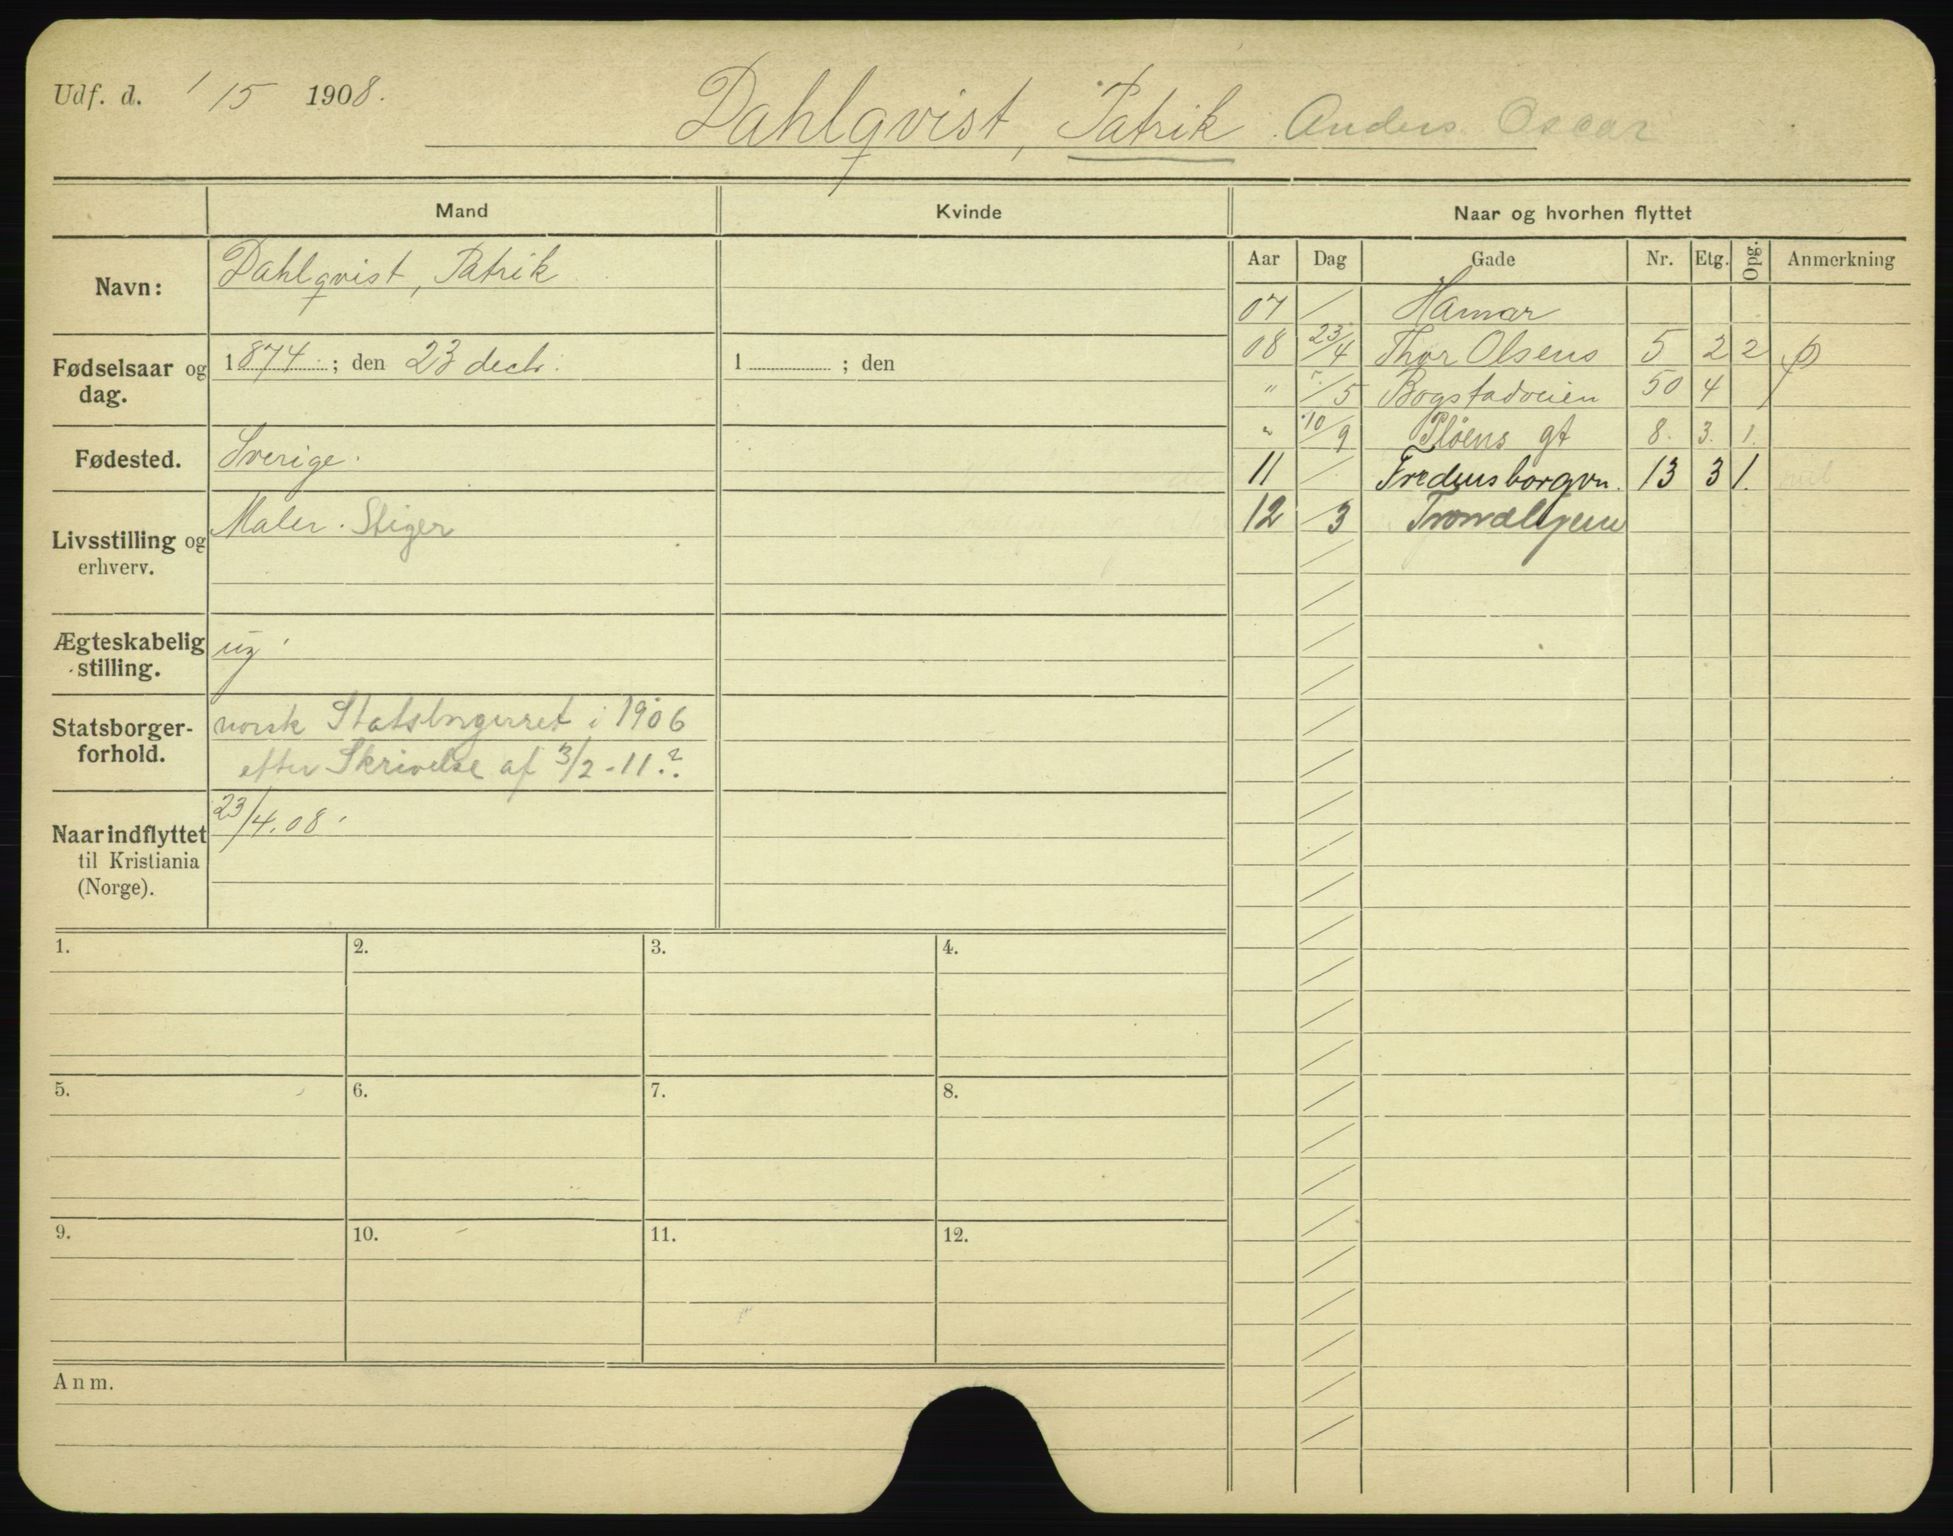 Udf. d. 1/5 1908.
Dahlqvist, Patrik Anders Oscar
Mand
Kvinde
Naar og hvorhen flyttet
Navn:
Dahlqvist, Patrik
Fødselsaar og dag.
1874 ; den 23 decb.
1 ; den
Fødested.
Sverige.
Livsstilling og erhverv.
Maler. Stiger
Ægteskabelig stilling.
ug
Statsborgerforhold.
norsk Statsborgerret i 1906
efter Skrivelse af 3/2-11.?
Naar indflyttet til Kristiania (Norge).
23/4.08
Aar Dag Gade Nr. Etg. Opg. Anmerkning
07 / Hamar
08 23/4 Thor Olsens 5 2 2
" /5 Bogstadveien 50 4
" 10/9 Pløens gt 8. 3. 1.
11 / Fredensborgvn. 13 3 1.
12 /3 Trondhjem
1. 2. 3. 4.
5. 6. 7. 8.
9. 10. 11. 12.
Anm.